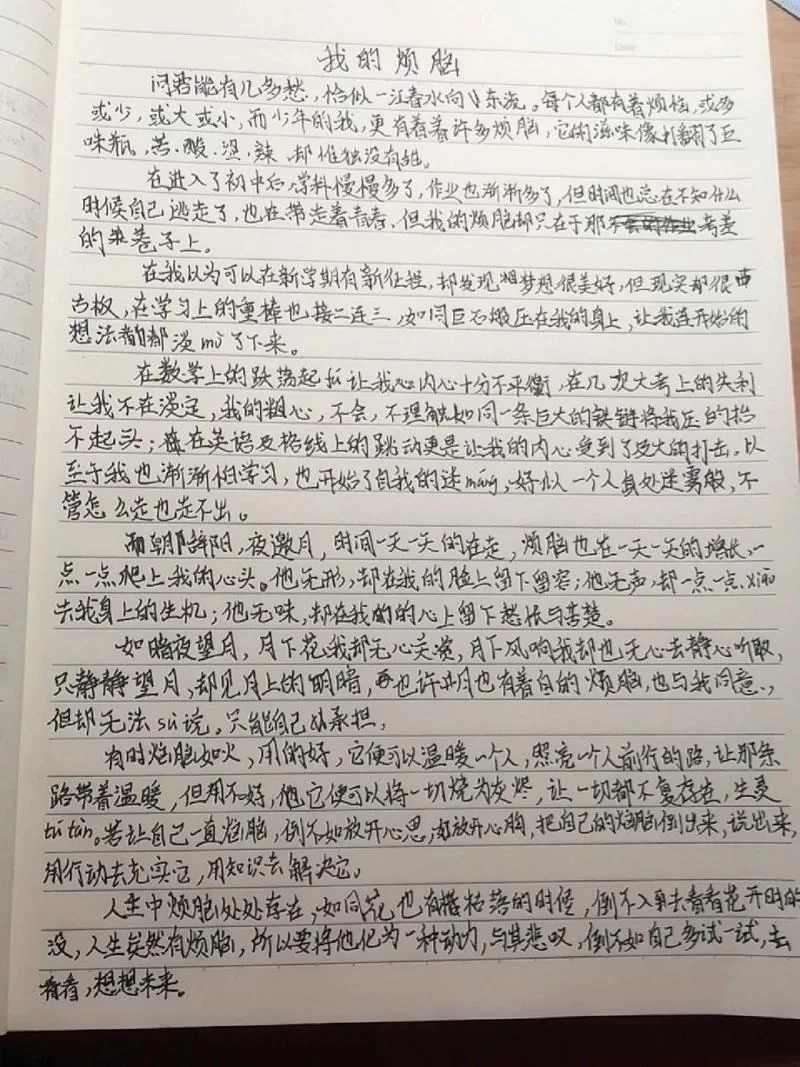 No.
Date
我的烦脑
问君能有几多愁,恰似一江春水向东流。每个人都有着烦恼,或多
或少,或大或小,而少年的我,更有着着许多烦脑,它的滋味像打翻了五
味瓶,苦、酸、涩、辣、却惟独没有甜。
在进入了初中后,学科慢慢多了,作业也渐渐多了,但时间也总在不知什么
时候自己逃走了,也在带走着青春,但我的烦脑却只在于那考差
的卷子上。
在我以为可以在新学期有新征程,却发现梦想很美好,但现实却很
古板,在学习上的重棒也接二连三,如同巨石般压在我的身上,让我连开始的
想法都都淡mò了下来。
在数学上的跌荡起私让我内心十分不平衡,在几次大考上的失利
让我不在淡定,我的粗心,不会,不理解如同一条巨大的铁链将我压的抬
不起头;在英语及格线上的跳动更是让我的内心受到了及大的打击,以
至于我也渐渐怕学习,也开始了自我的迷máng,好似一个人身处迷雾般,不
管怎么走也走不出。
而朝辞阳,夜邀月,时间一天一天的在走,烦脑也在一天一天的增长,一
点一点爬上我的心头。他无形,却在我的脸上留下留容;他无声,却一点一点xiāo
去我身上的生机;他无味,却在我的的心上留下愁怅与苦楚。
如暗夜望月,月下花我却无心关赏,月下风响我却也无心去静心听取,
只静静望月,却见月上的阴暗,也许月也有着自的烦脑,也与我同意,
但却无法sù说。只能自己承担,
有时恼脑如火,用的好,它便可以温暖一个人,照亮一个人前行的路,让那条
路带着温暖,但用不好,他它便可以将一切烧为灰烬,让一切都不复存在,生灵
tú tàn。若让自己一直恼脑,倒不如放开心思,放开心胸,把自己的恼脑倒出来,说出来,
用行动去充实它,用知识去解决它。
人生中烦脑处处存在,如同花也有枯落的时候,倒不入去看看花开时的
没,人生突然有烦脑,所以要将他化为一种动力,与其悲叹,倒不如自己多试一试,去
看看,想想未来。